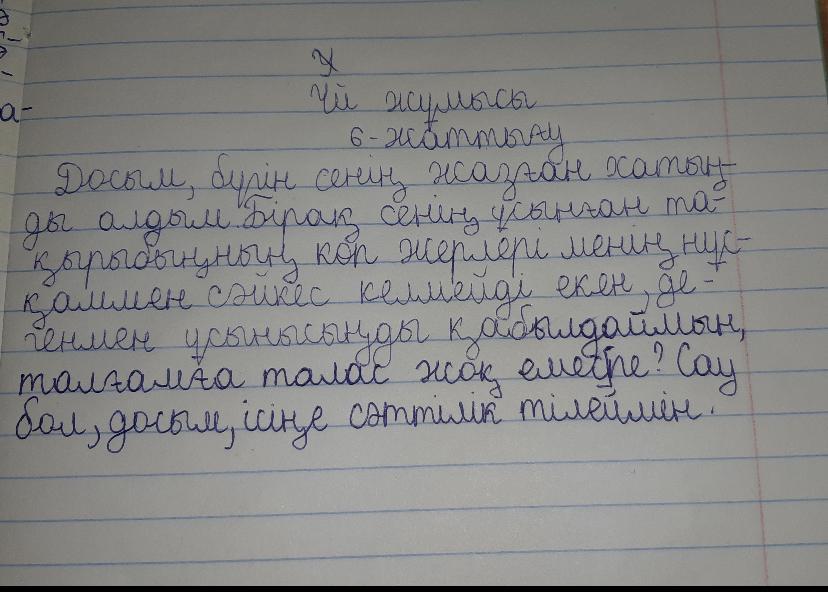 Х
Үй жұмысы
6-жаттығу
Досым, бүгін сенің жазған хатың-
ды алдым. Бірақ сенің ұсынған та-
қырыбыңның көп жерлері менің нұс-
қаммен сәйкес келмейді екен, де-
генмен ұсынысыңды қабылдаймын,
талғамға талас жоқ емеспе? Сау
бол, досым, ісіңе сәттілік тілеймін.